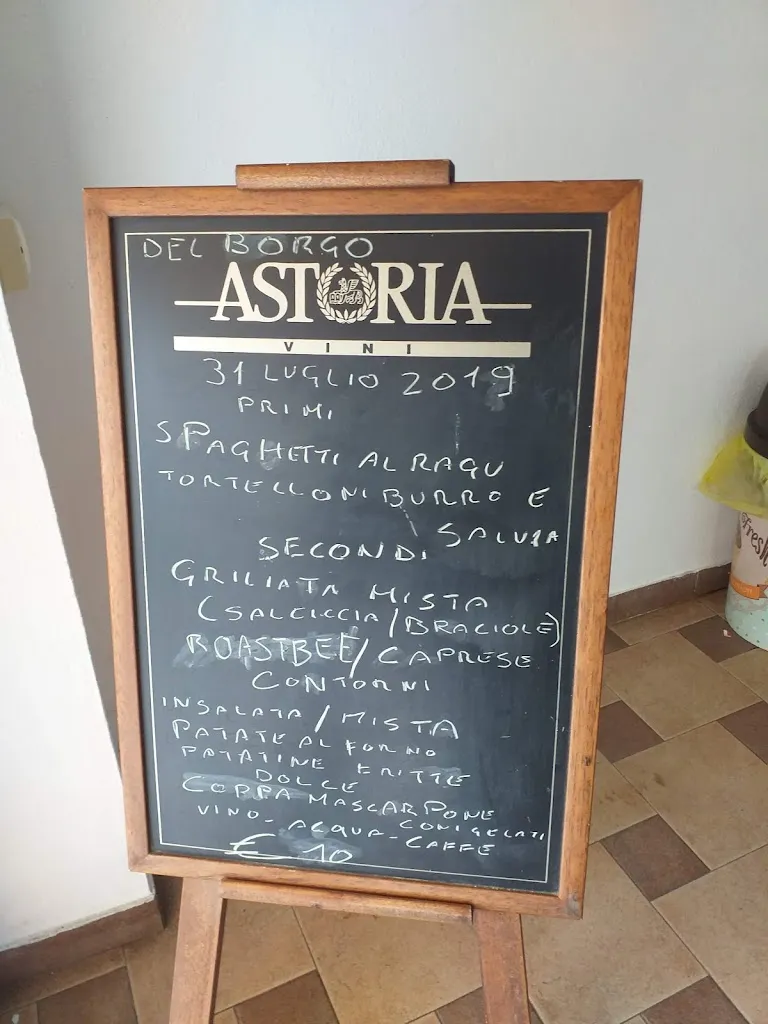 DEL BORGO
ASTORIA
VINI
31 LUGLIO 2019
PRIMI
SPAGHETTI AL RAGU
TORTELLONI BURRO E
SALVIA
SECONDI
GRILIATA MISTA
(SALCICCIA/BRACIOLE)
ROASTBEEF/CAPRESE
CONTORNI
INSALATA/MISTA
PATATE AL FORNO
PATATINE FRITTE
DOLCE
COPPA MASCARPONE
CONI GELATI
VINO-ACQUA-CAFFE
€ 10
fresh